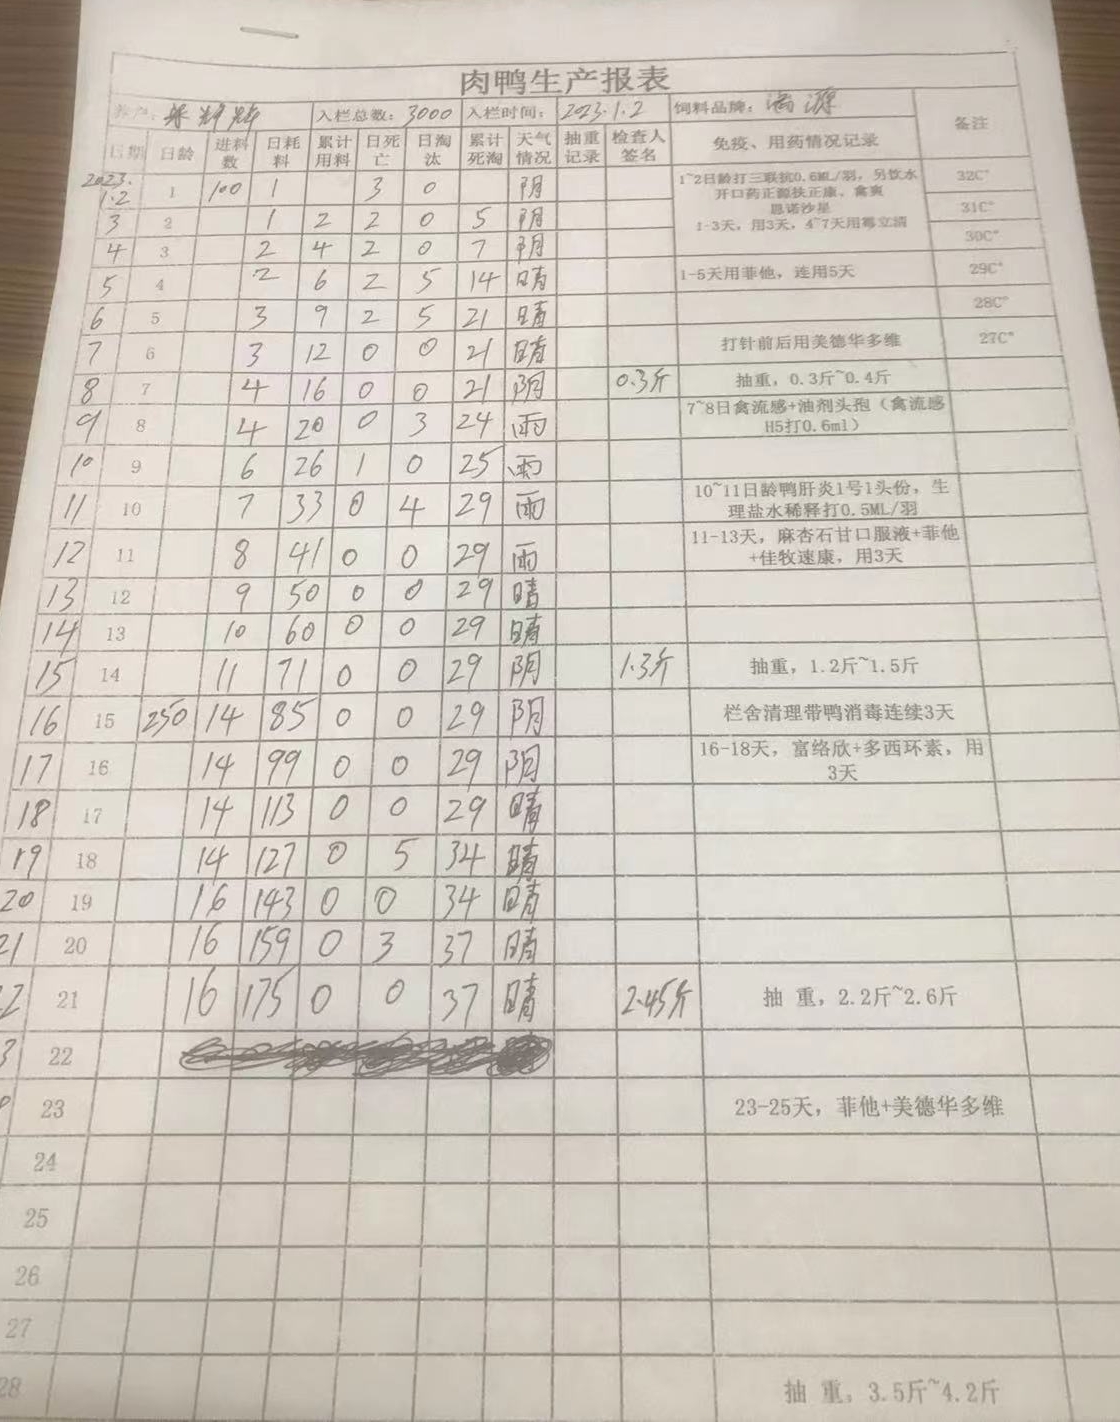 肉鸭生产报表
养户： 入栏总数：3000 入栏时间：2023.1.2 饲料品牌：
日期 日龄 进料数 日耗料 累计用料 日死亡 日淘汰 累计死淘 天气情况 抽重记录 检查人签名 免疫、用药情况记录 备注
2023.1.2 1 100 1 3 0 阴 1~2日龄打三联抗0.6ML/羽，另饮水 32C°
开口药正源扶正康、禽爽
恩诺沙星
3 2 1 2 2 0 5 阴 1-3天，用3天，4~7天用霉立清 31C°
4 3 2 4 2 0 7 阴 30C°
5 4 2 6 2 5 14 晴 1-5天用菲他，连用5天 29C°
6 5 3 9 2 5 21 晴 28C°
7 6 3 12 0 0 21 晴 打针前后用美德华多维 27C°
8 7 4 16 0 0 21 阴 0.3斤 抽重，0.3斤~0.4斤
9 8 4 20 0 3 24 雨 7~8日禽流感+油剂头孢（禽流感
H5打0.6ml）
10 9 6 26 1 0 25 雨
11 10 7 33 0 4 29 雨 10~11日龄鸭肝炎1号1头份，生
理盐水稀释打0.5ML/羽
12 11 8 41 0 0 29 雨 11-13天，麻杏石甘口服液+菲他
+佳牧速康，用3天
13 12 9 50 0 0 29 晴
14 13 10 60 0 0 29 晴
15 14 11 71 0 0 29 阴 1.3斤 抽重，1.2斤~1.5斤
16 15 250 14 85 0 0 29 阴 栏舍清理带鸭消毒连续3天
17 16 14 99 0 0 29 阴 16-18天，富络欣+多西环素，用
3天
18 17 14 113 0 0 29 晴
19 18 14 127 0 5 34 晴
20 19 16 143 0 0 34 晴
21 20 16 159 0 3 37 晴
2 21 16 175 0 0 37 晴 2.45斤 抽 重，2.2斤~2.6斤
3 22
23 23-25天，菲他+美德华多维
24
25
26
27
28 抽 重，3.5斤~4.2斤